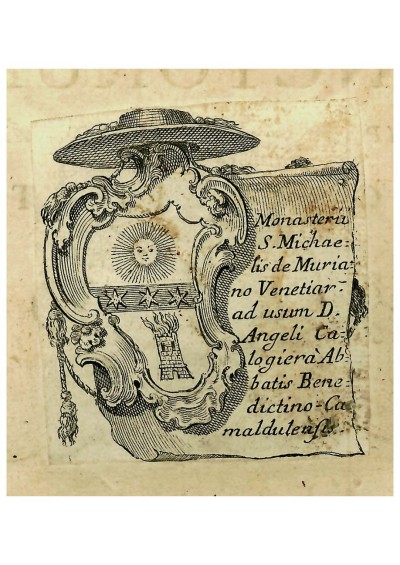 Monasterii
S. Michae-
lis de Muria-
no Venetiar-
ad usum D.
Angeli Ca-
logiera Ab-
batis Bene-
dictino-Ca-
maldulensis.